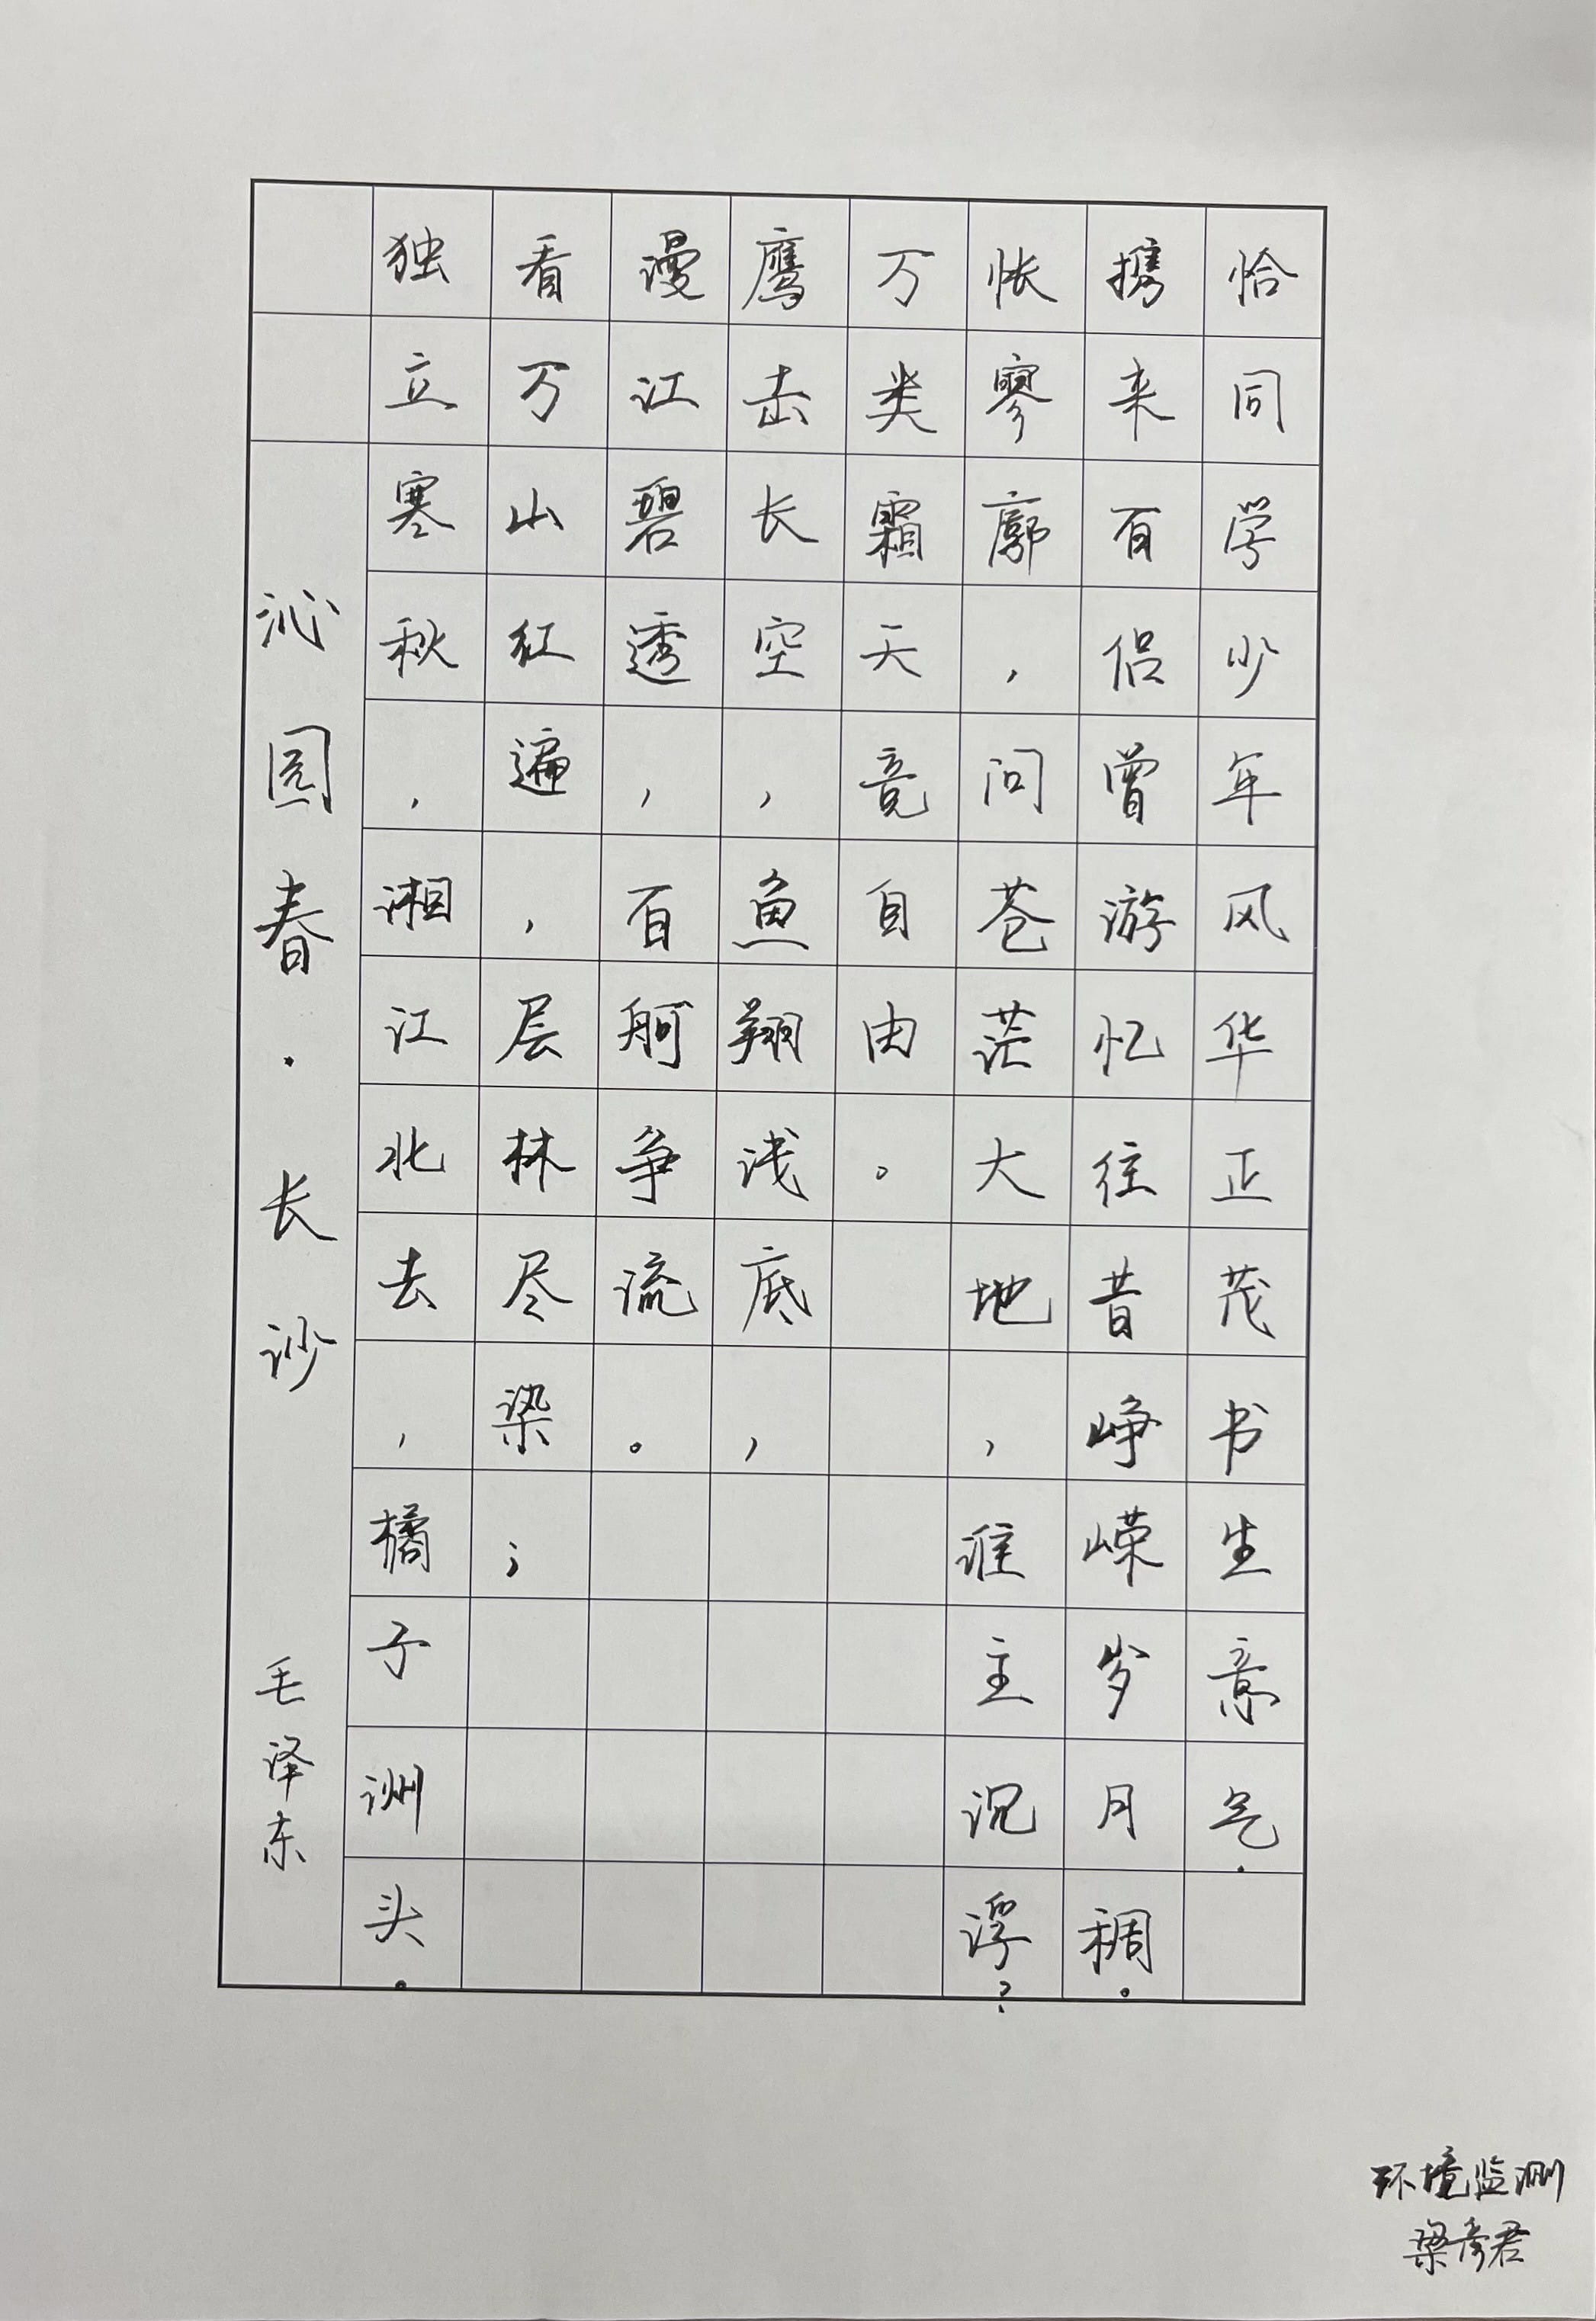 沁园春·长沙 毛泽东
独立寒秋，湘江北去，橘子洲头。
看万山红遍，层林尽染；
漫江碧透，百舸争流。
鹰击长空，鱼翔浅底，
万类霜天竞自由。
怅寥廓，问苍茫大地，谁主沉浮？
携来百侣曾游忆往昔峥嵘岁月稠。
恰同学少年风华正茂书生意气.
环境监测
梁君